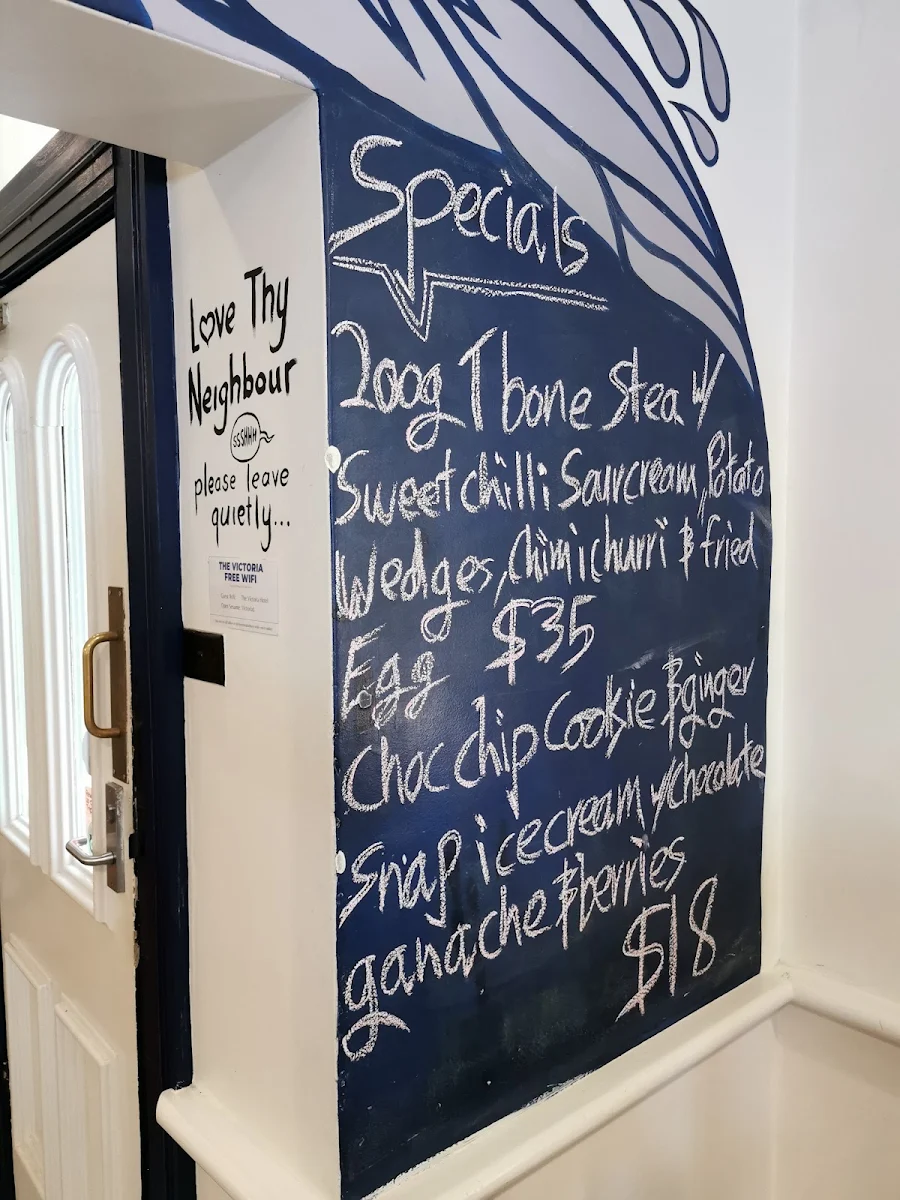 Specials
200g T bone Stea w/
Sweet chilli Sourcream, Potato
Wedges, Chimichurri & fried
Egg $35
Choc chip Cookie & ginger
Snap icecream w/chocolate
ganache & berries
$18
Love Thy
Neighbour
SSSHHH
please leave
quietly...
THE VICTORIA
FREE WIFI